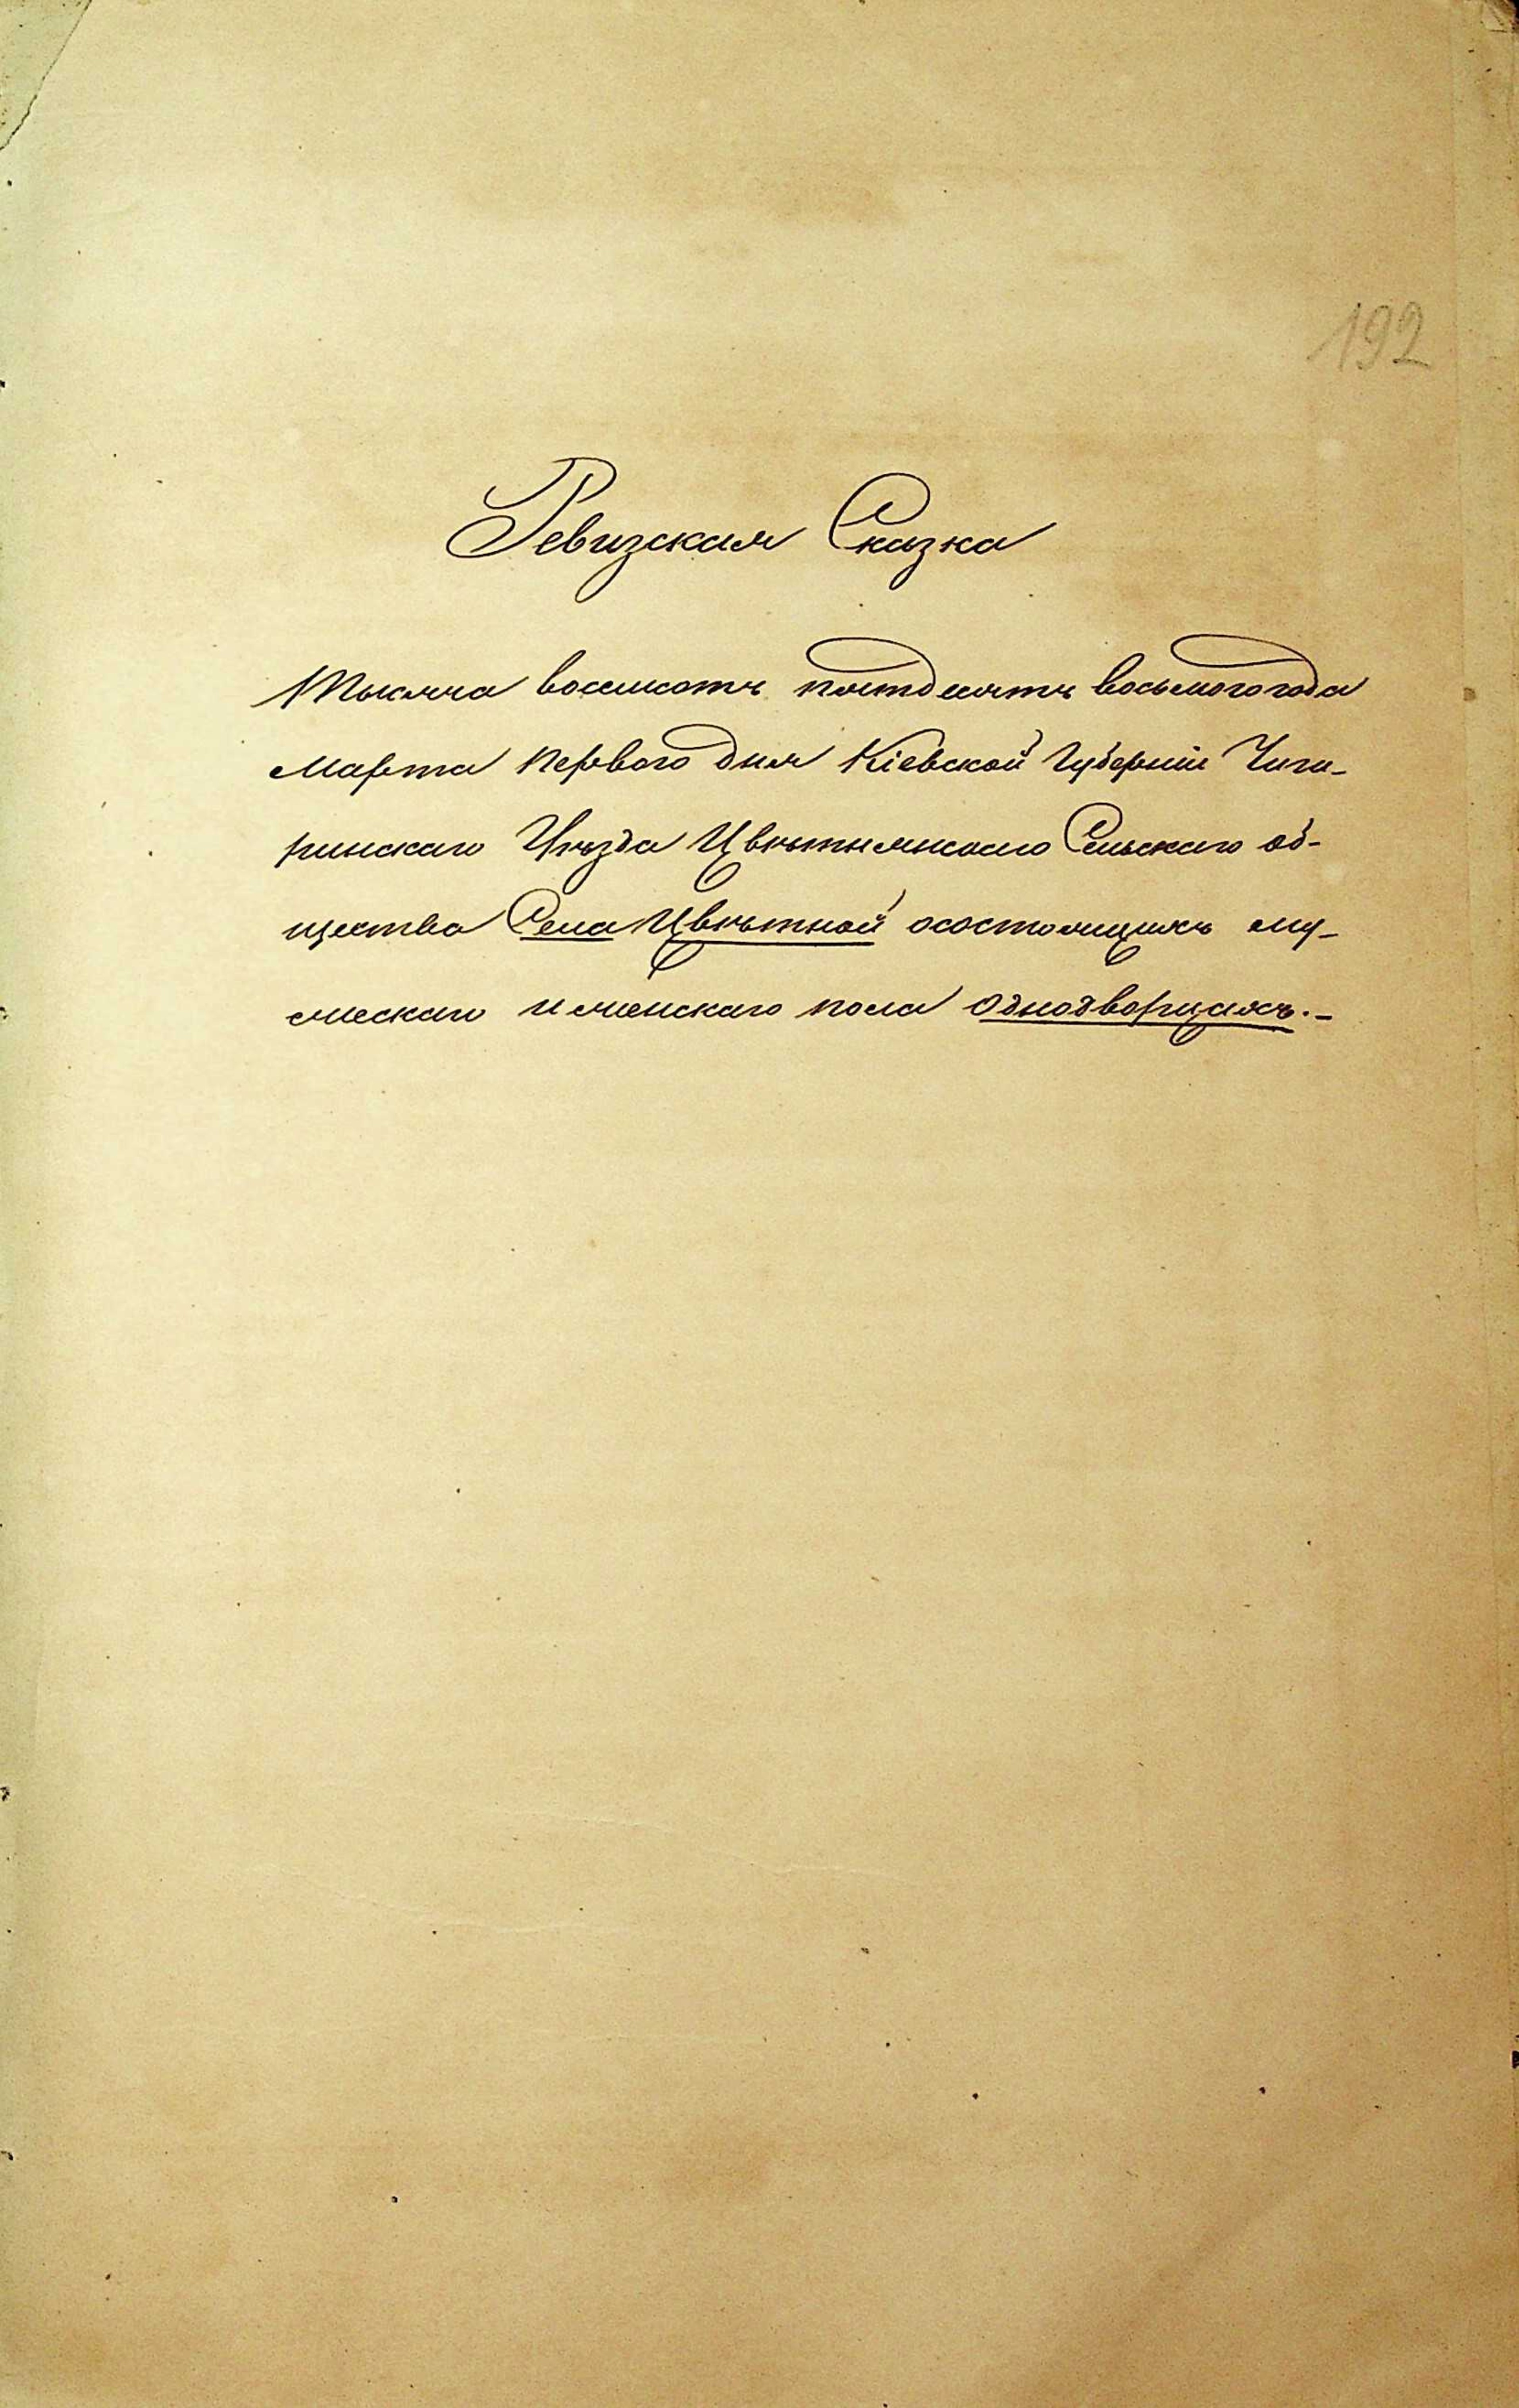 192
Ревизская Сказка
Тысяча восемсотъ пятдесятъ восьмого года
Марта первого дня Кіевской Губерніи Чиги-
ринскаго Уѣзда Цвѣтнянского Сельскаго об-
щества Села Цвѣтной осостоящихъ му-
жескаго и женскаго пола однодворцахъ.-